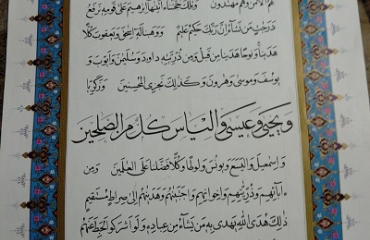 لهم الأمن وهم مهتدون وتلك حجتنا ءاتينها إبرهيم على قومه نرفع
درجت من نشاء إن ربك حكيم عليم ووهبنا له إسحق ويعقوب كلا
هدينا ونوحا هدينا من قبل ومن ذريته داود وسليمن وأيوب و
يوسف وموسى وهرون وكذلك نجزي المحسنين وزكريا
ويحيى وعيسى وإلياس كل من الصلحين
وإسمعيل واليسع ويونس ولوطا وكلا فضلنا على العلمين ومن
ءابائهم وذريتهم وإخوانهم واجتبينهم وهدينهم إلى صراط مستقيم
ذلك هدى الله يهدي به من يشاء من عباده ولو أشركوا لحبط عنهم